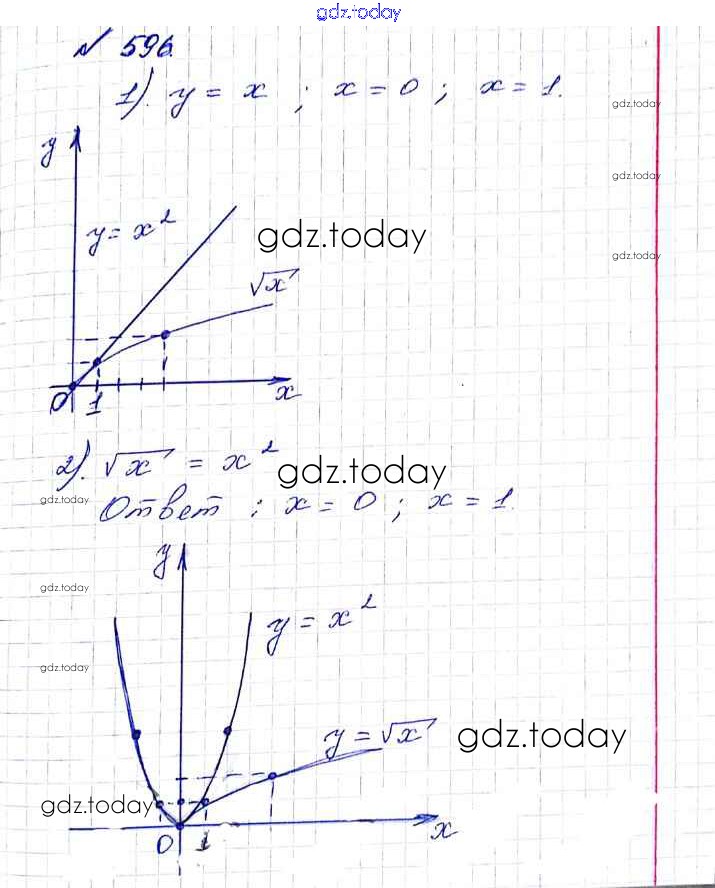 gdz.today
№ 596.
1). y = x ; x = 0 ; x = 1.
gdz.today
y
gdz.today
y = x²
gdz.today
gdz.today
√x
0 1 x
2). √x = x²
gdz.today
gdz.today
Ответ : x = 0 ; x = 1.
y
gdz.today
y = x²
gdz.today
y = √x
gdz.today
gdz.today
0 1 x